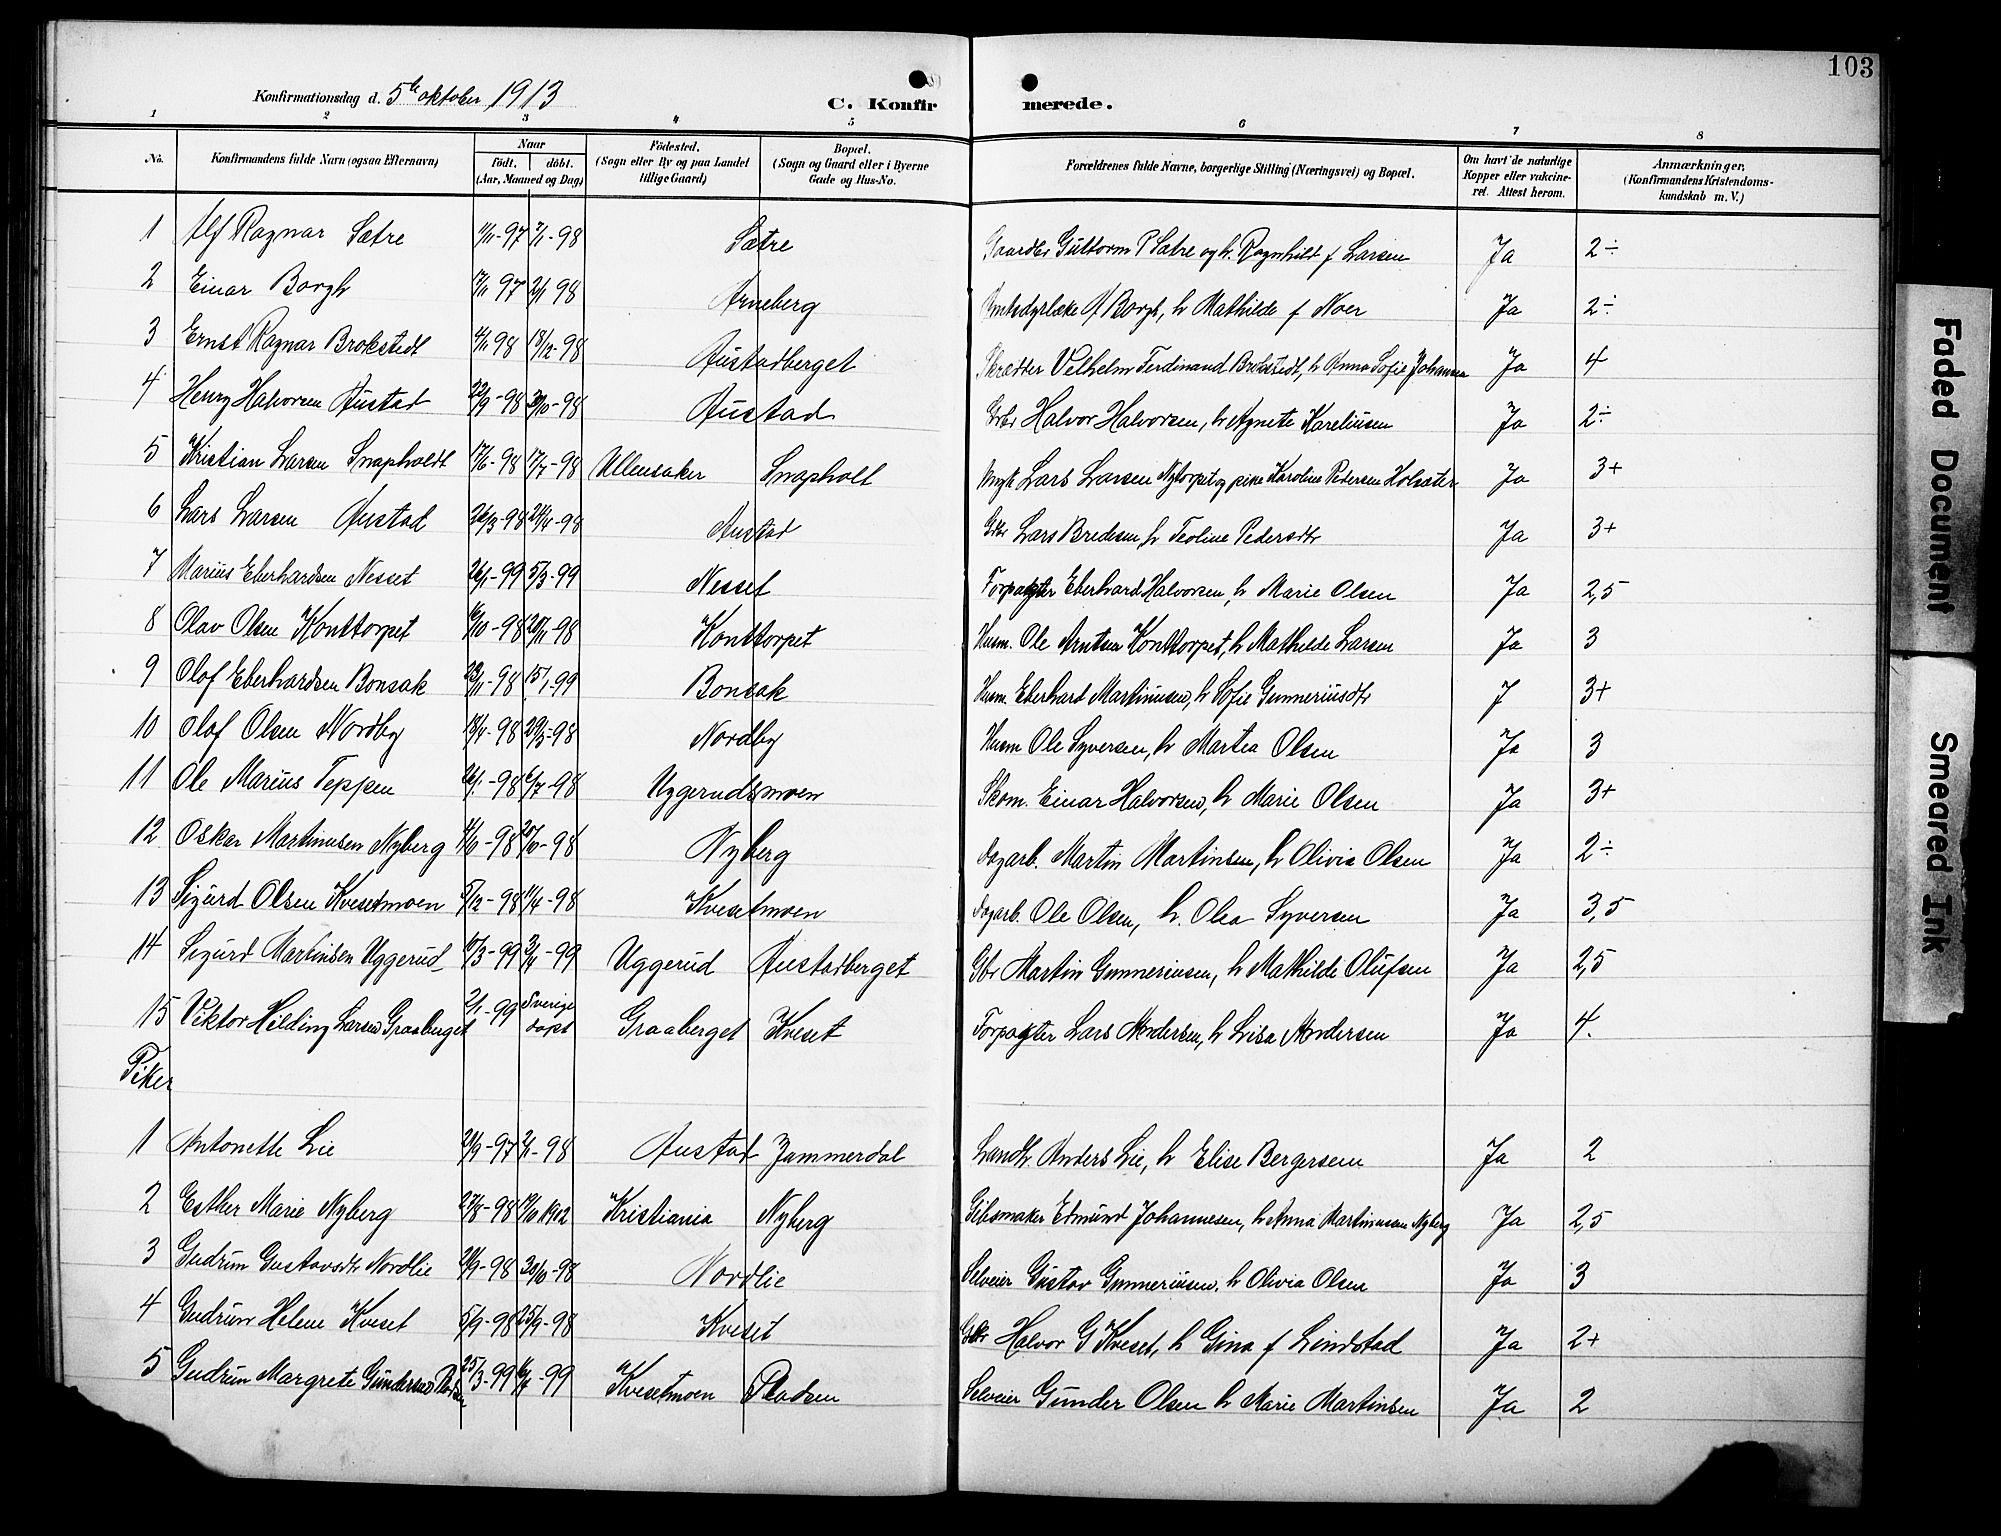 103
Konfirmationsdag d. 5te oktober 1913
C. Konfirmerede.
1 2 3 4 5 6 7 8
No. Konfirmandens fulde Navn (ogsaa Efternavn) Naar født. døbt. (Aar, Maaned og Dag) Fødested. (Sogn eller By og paa Landet tillige Gaard) Bopæl. (Sogn og Gaard eller i Byerne Gade og Hus-No. Forældrenes fulde Navne, borgerlige Stilling (Næringsvei) og Bopæl. Om havt de naturlige Kopper eller vakcineret. Attest herom. Anmærkninger, (Konfirmandens Kristendomskundskab m. V.)
1 Alf Ragnar Sætre 11/11-97 7/1-98 Sætre Gaardbr Guttorm P Sætre og h. Ragnhild f Larsen Ja 2÷
2 Einar Borgh 17/11 97 2/1 98 Arneberg Amtsdyrlæke A Borgh, h Mathilde f Noer Ja 2÷
3 Ernst Ragnar Brokstedt 4/11 98 18/12-98 Austadberget Skrædder Velhelm Ferdinand Brokstedt, h Anna Sofie Johansen Ja 4
4 Henry Halvorsen Austad 22/9-98 30/10-98 Austad Grbr Halvor Halvorsen, h Agnete Kareliusen Ja 2÷
5 Kristian Larsen Snapholdt 17/6-98 17/7-98 Ullensaker Snapholt Ungk Lars Larsen Nytorpet og pike Karoline Pedersen Holsæter Ja 3+
6 Lars Larsen Austad 26/3-98 24/4-98 Austad Gdbr Lars Bredesen, h Teoline Pedersdtr Ja 3+
7 Marius Eberhardsen Nesset 26/1-99 5/3-99 Nesset Forpagter Eberhard Halvorsen, h Marie Olsen Ja 2,5
8 Olav Olsen Konttorpet 16/10-98 20/11-98 Konttorpet Husm. Ole Arntsen Konttorpet, h Mathilde Larsen Ja 3
9 Olaf Eberhardsen Bonsak 23/11-98 15/1-99 Bonsak Husm. Eberhard Martinusen, h Sofie Gunneriusdtr J 3+
10 Olaf Olsen Nordby 18/4-98 29/5-98 Nordby Husm Ole Syversen, h Martea Olsen Ja 3
11 Ole Marius Teppen 26/1-98 6/7-98 Uggerudsmoen Skom. Einar Halvorsen, h Marie Olsen Ja 3+
12 Oskar Martinusen Nyberg -98 20/10-98 Nyberg Dagarb. Martin Martinsen, h Olivia Olsen Ja 2÷
13 Sigurd Olsen Kvesetmoen 5/12-98 11/4-98 Kvesetmoen Dagarb. Ole Olsen, h. Olea Syversen Ja 3,5
14 Sigurd Martinsen Uggerud 10/3-99 3/4-99 Uggerud Austadberget Gbr Martin Gunneriusen, h Mathilde Olufsen Ja 2,5
15 Viktor Hilding Larsen Graaberget 2/1-99 Sverige døpt Graaberget Kveset Forpagter Lars Andersen, h Lisa Andersen Ja 4.
Piker
1 Antonette Lie 21/9-97 2/1-98 Austad Jammerdal Landh. Anders Lie, h Elise Bergersen Ja 2
2 Esther Marie Nyberg 27/8-98 19/10 1902 Kristiania Nyberg Gibsmaker Edmund Johannesen, h Anna Martinusen Nyberg Ja 2,5
3 Gudrun Gustavsdtr Nordlie 20/9-98 30/10-98 Nordlie Selveier Gustav Gunneriusen, h Olivia Olsen Ja 3
4 Gudrun Helene Kveset 5/9-98 25/9-98 Kveset Gdbr Halvor G Kveset, h Gina f Lindstad Ja 2+
5 Gudrun Margrete Gundersen Pladsen 25/3-99 -99 Kvesetmoen Pladsen Selveier Gunder Olsen h Marie Martinsen Ja 2
Faded Document
Smeared Ink